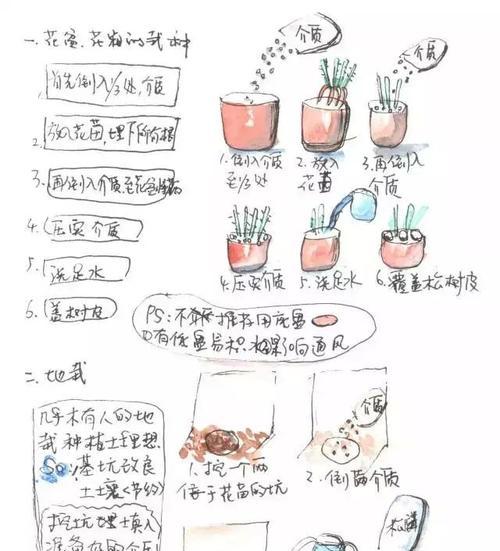 一、花盆、花箱的栽种
首先倒入1/3处,介质
2. 放入花苗,埋下所有根
3. 再倒入介质至
4. 压实介质
5. 浇足水
6. 盖树皮
介质
介质
1. 倒入介质
至1/3处
2. 放入
花苗
3. 再倒入
介质
4. 压实介质
5. 浇足水
6. 覆盖松树皮
PS:不推荐用底盘
有底盘易积水影响通风
二、地栽
几乎木有人的地
栽种植土理想
So,基坑改良
土壤(节约)
挖坑埋土填入
准备好的介质
1. 挖一个两
倍于花苗的坑
介质
2. 倒满介质
松鳞